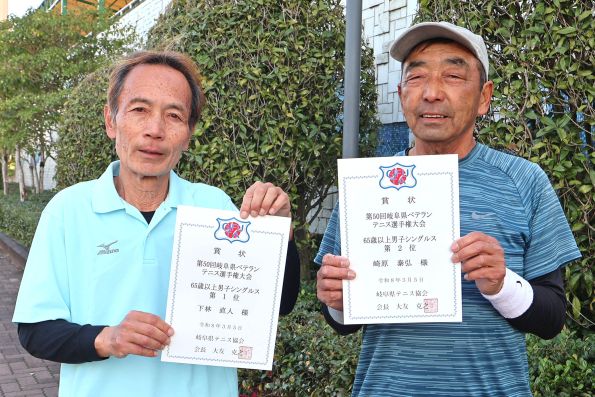 賞 状
第50回岐阜県ベテラン
テニス選手権大会
65歳以上男子シングルス
第 1 位
下林 直人 様
令和8年3月5日
岐阜県テニス協会
会長 大友 克之
賞 状
第50回岐阜県ベテラン
テニス選手権大会
65歳以上男子シングルス
第 2 位
崎原 泰弘 様
令和8年3月5日
岐阜県テニス協会
会長 大友 克之